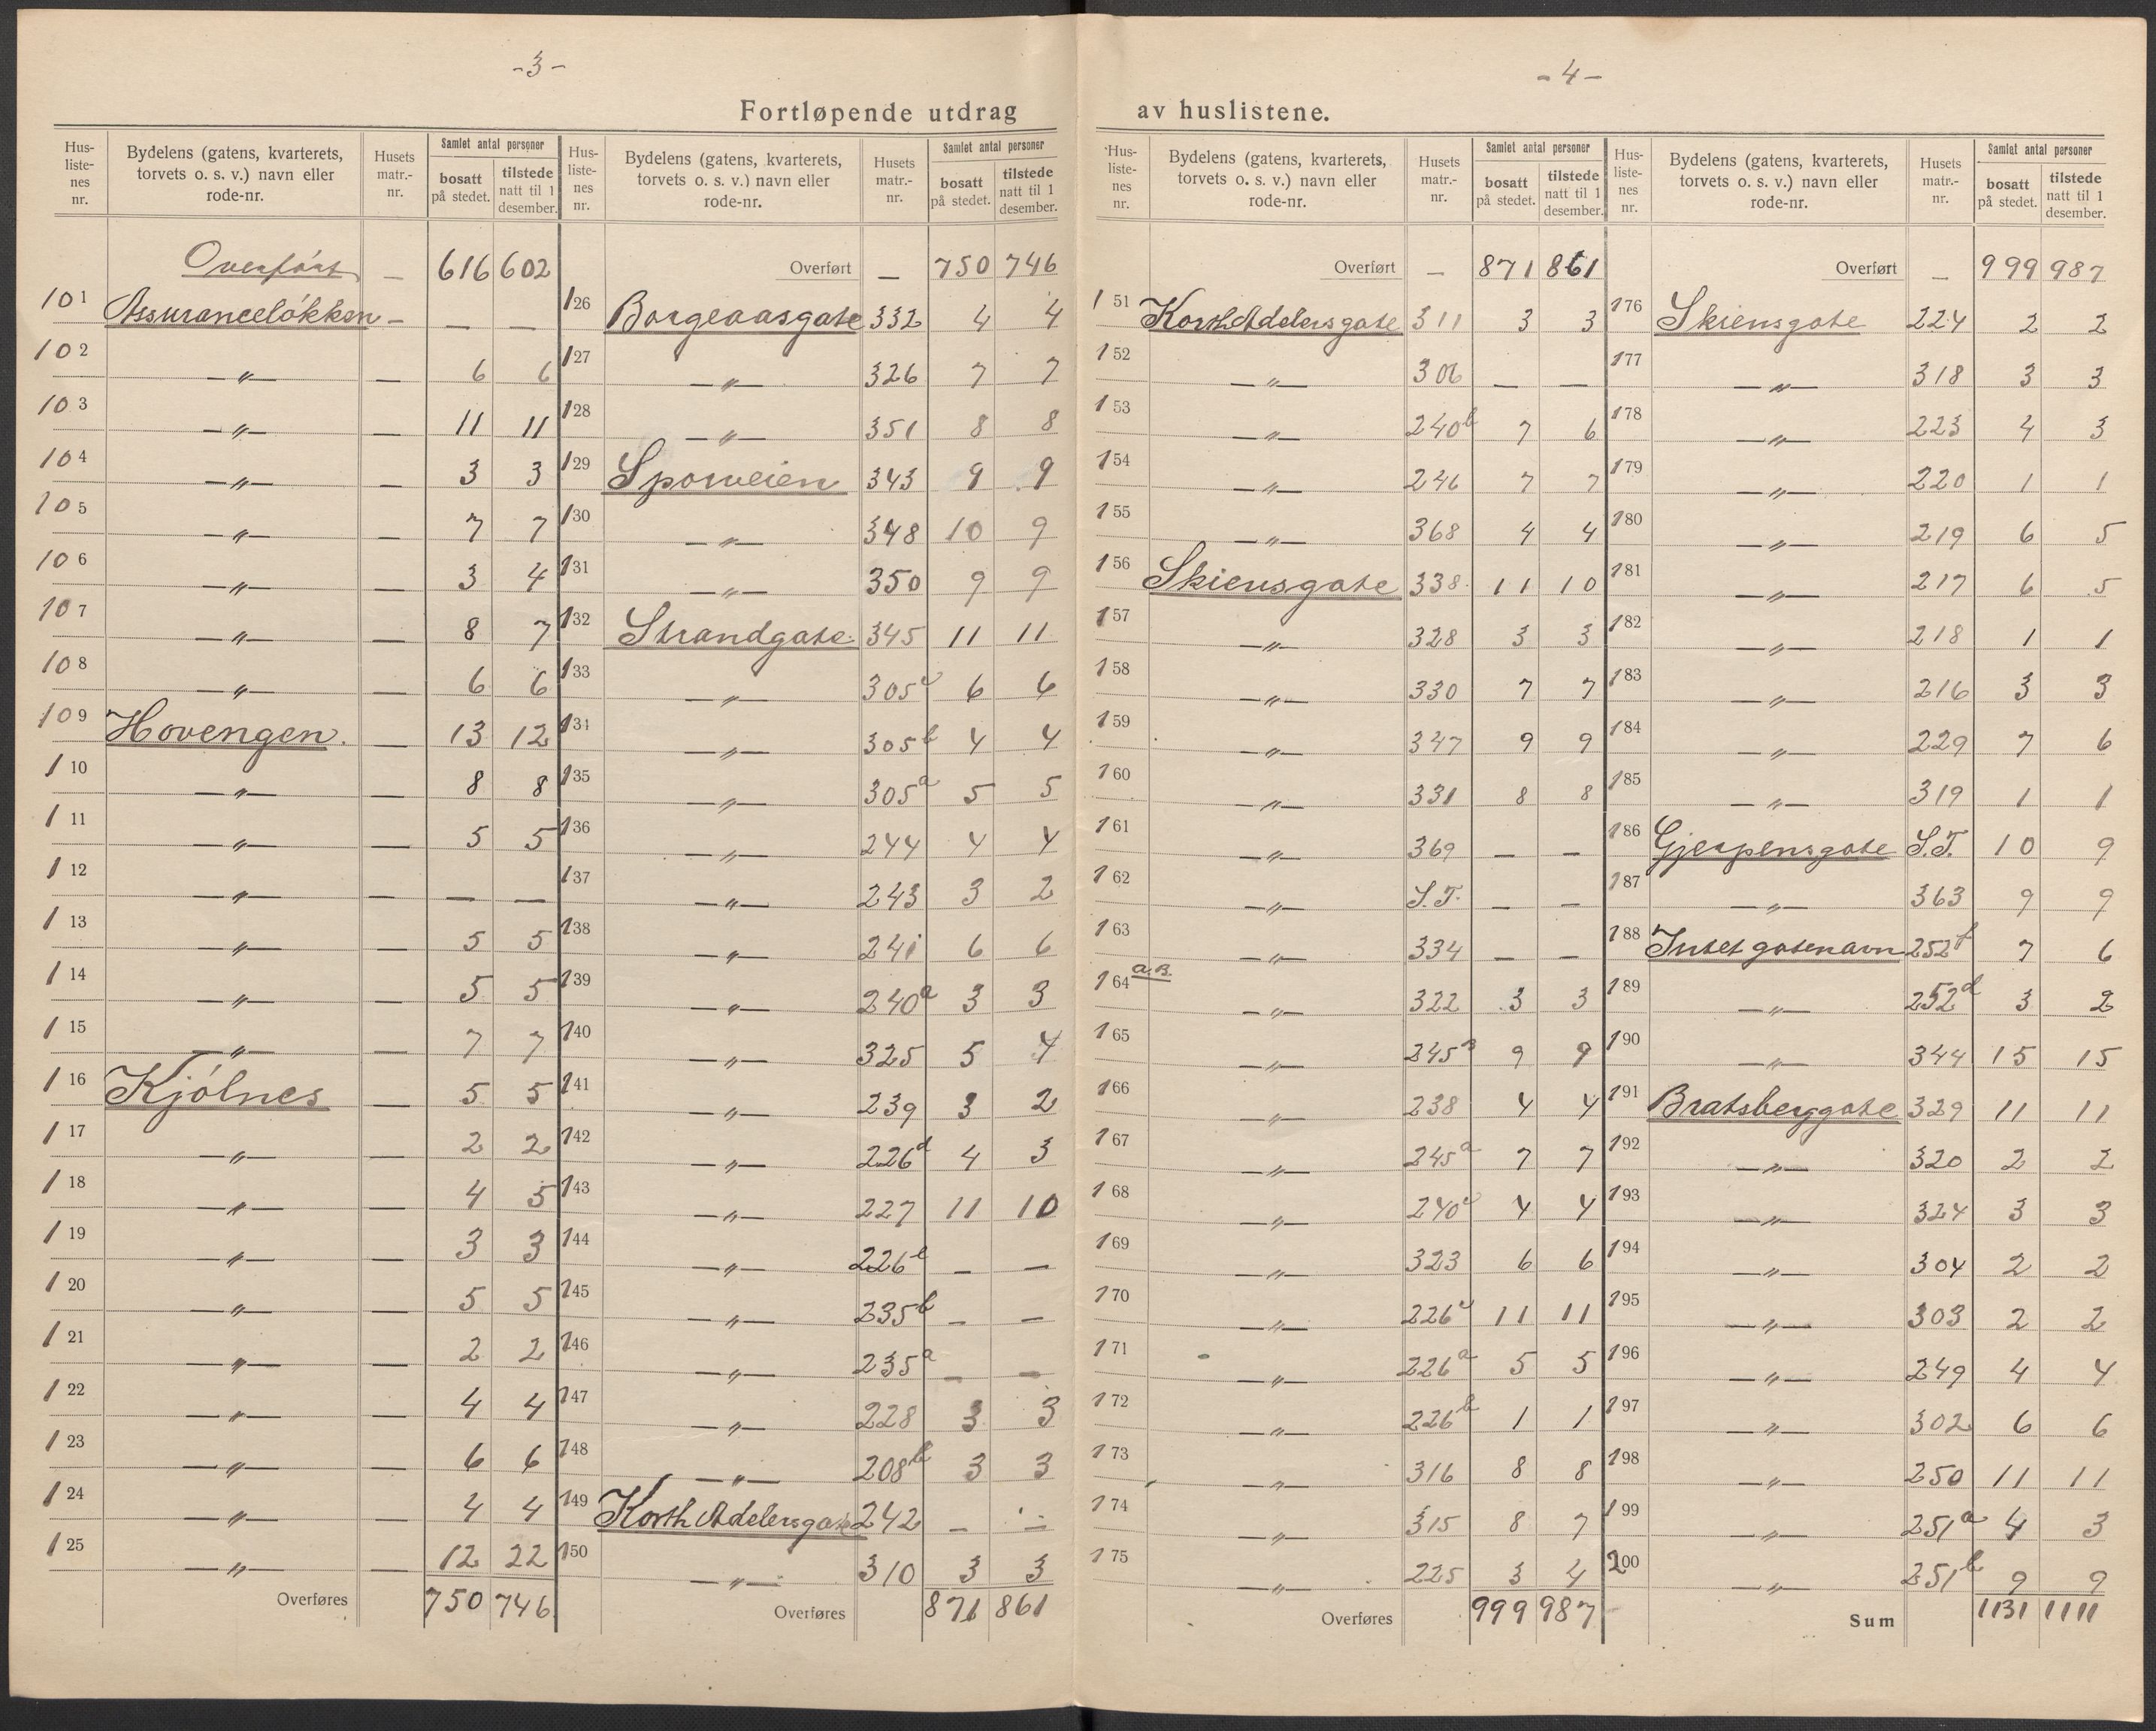 -3-
Fortløpende utdrag
Hus-liste-nes nr. | Bydelens (gatens, kvarterets, torvets o. s. v.) navn eller rode-nr. | Husets matr.-nr. | Samlet antal personer bosatt på stedet. | tilstede natt til 1 desember.
Overført — 616 602
101 Assuranceløkken — — —
102 —〃— — 6 6
103 —〃— — 11 11
104 —〃— — 3 3
105 —〃— — 7 7
106 —〃— — 3 4
107 —〃— — 8 7
108 —〃— — 6 6
109 Hovengen. — 13 12
110 —〃— — 8 8
111 —〃— — 5 5
112 —〃— — — —
113 —〃— — 5 5
114 —〃— — 5 5
115 —〃— — 7 7
116 Kjølnes — 5 5
117 —〃— — 2 2
118 —〃— — 4 5
119 —〃— — 3 3
120 —〃— — 5 5
121 —〃— — 2 2
122 —〃— — 4 4
123 —〃— — 6 6
124 —〃— — 4 4
125 —〃— — 12 22
Overføres 750 746
Hus-liste-nes nr. | Bydelens (gatens, kvarterets, torvets o. s. v.) navn eller rode-nr. | Husets matr.-nr. | Samlet antal personer bosatt på stedet. | tilstede natt til 1 desember.
Overført — 750 746
126 Borgeaasgate 332 4 4
127 —〃— 326 7 7
128 —〃— 351 8 8
129 Sporveien 343 9 9
130 —〃— 348 10 9
131 —〃— 350 9 9
132 Strandgate 345 11 11
133 —〃— 305c 6 6
134 —〃— 305b 4 4
135 —〃— 305a 5 5
136 —〃— 244 4 4
137 —〃— 243 3 2
138 —〃— 241 6 6
139 —〃— 240a 3 3
140 —〃— 325 5 4
141 —〃— 239 3 2
142 —〃— 226d 4 3
143 —〃— 227 11 10
144 —〃— 226e — —
145 —〃— 235b — —
146 —〃— 235a — —
147 —〃— 228 3 3
148 —〃— 208b 3 3
149 Korth Adelersgate 242 — —
150 —〃— 310 3 3
Overføres 871 861
-4-
av huslistene.
Hus-liste-nes nr. | Bydelens (gatens, kvarterets, torvets o. s. v.) navn eller rode-nr. | Husets matr.-nr. | Samlet antal personer bosatt på stedet. | tilstede natt til 1 desember.
Overført — 871 861
151 Korth Adelersgate 311 3 3
152 —〃— 306 — —
153 —〃— 240b 7 6
154 —〃— 246 7 7
155 —〃— 368 4 4
156 Skiensgate 338 11 10
157 —〃— 328 3 3
158 —〃— 330 7 7
159 —〃— 347 9 9
160 —〃— 331 8 8
161 —〃— 369 — —
162 —〃— S.T. — —
163 —〃— 334 — —
164 a.B. —〃— 322 3 3
165 —〃— 245B 9 9
166 —〃— 238 4 4
167 —〃— 245a 7 7
168 —〃— 240c 4 4
169 —〃— 323 6 6
170 —〃— 226c 11 11
171 —〃— 226a 5 5
172 —〃— 226b 1 1
173 —〃— 316 8 8
174 —〃— 315 8 7
175 —〃— 225 3 4
Overføres 999 987
Hus-liste-nes nr. | Bydelens (gatens, kvarterets, torvets o. s. v.) navn eller rode-nr. | Husets matr.-nr. | Samlet antal personer bosatt på stedet. | tilstede natt til 1 desember.
Overført — 999 987
176 Skiensgate 224 2 2
177 —〃— 318 3 3
178 —〃— 223 4 3
179 —〃— 220 1 1
180 —〃— 219 6 5
181 —〃— 217 6 5
182 —〃— 218 1 1
183 —〃— 216 3 3
184 —〃— 229 7 6
185 —〃— 319 1 1
186 Gjerpensgate S.T. 10 9
187 —〃— 363 9 9
188 Intet gatenavn 252f 7 6
189 —〃— 252d 3 2
190 —〃— 344 15 15
191 Bratsberggate 329 11 11
192 —〃— 320 2 2
193 —〃— 324 3 3
194 —〃— 304 2 2
195 —〃— 303 2 2
196 —〃— 249 4 4
197 —〃— 302 6 6
198 —〃— 250 11 11
199 —〃— 251a 4 3
200 —〃— 251b 9 9
Sum 1131 1111